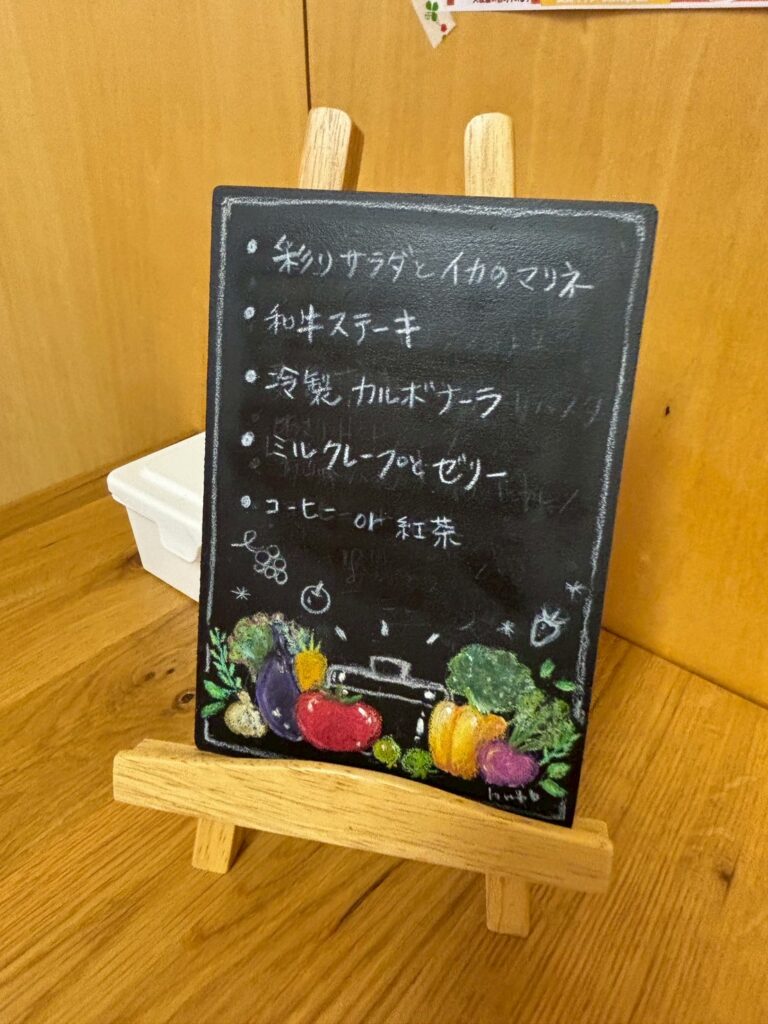 • 彩りサラダとイカのマリネ
• 和牛ステーキ
• 冷製カルボナーラ
• ミルクレープとゼリー
• コーヒー or 紅茶